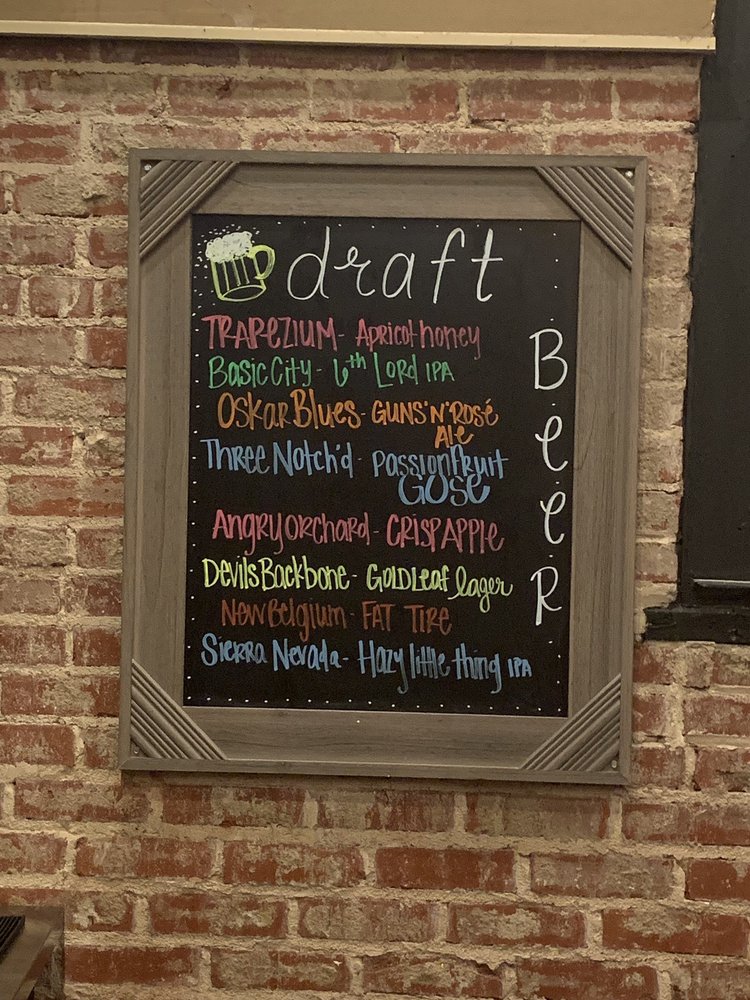 draft
TRAPEZIUM - Apricot honey
Basic City - 6th Lord IPA
Oskar Blues - GUNS 'N' ROSÉ
Ale
Three Notch'd - PASSIONFRUIT
GOSE
Angry Orchard - CRISP APPLE
Devils Backbone - GOLD LEAF lager
New Belgium - FAT TIRE
Sierra Nevada - Hazy little thing IPA
BeeR